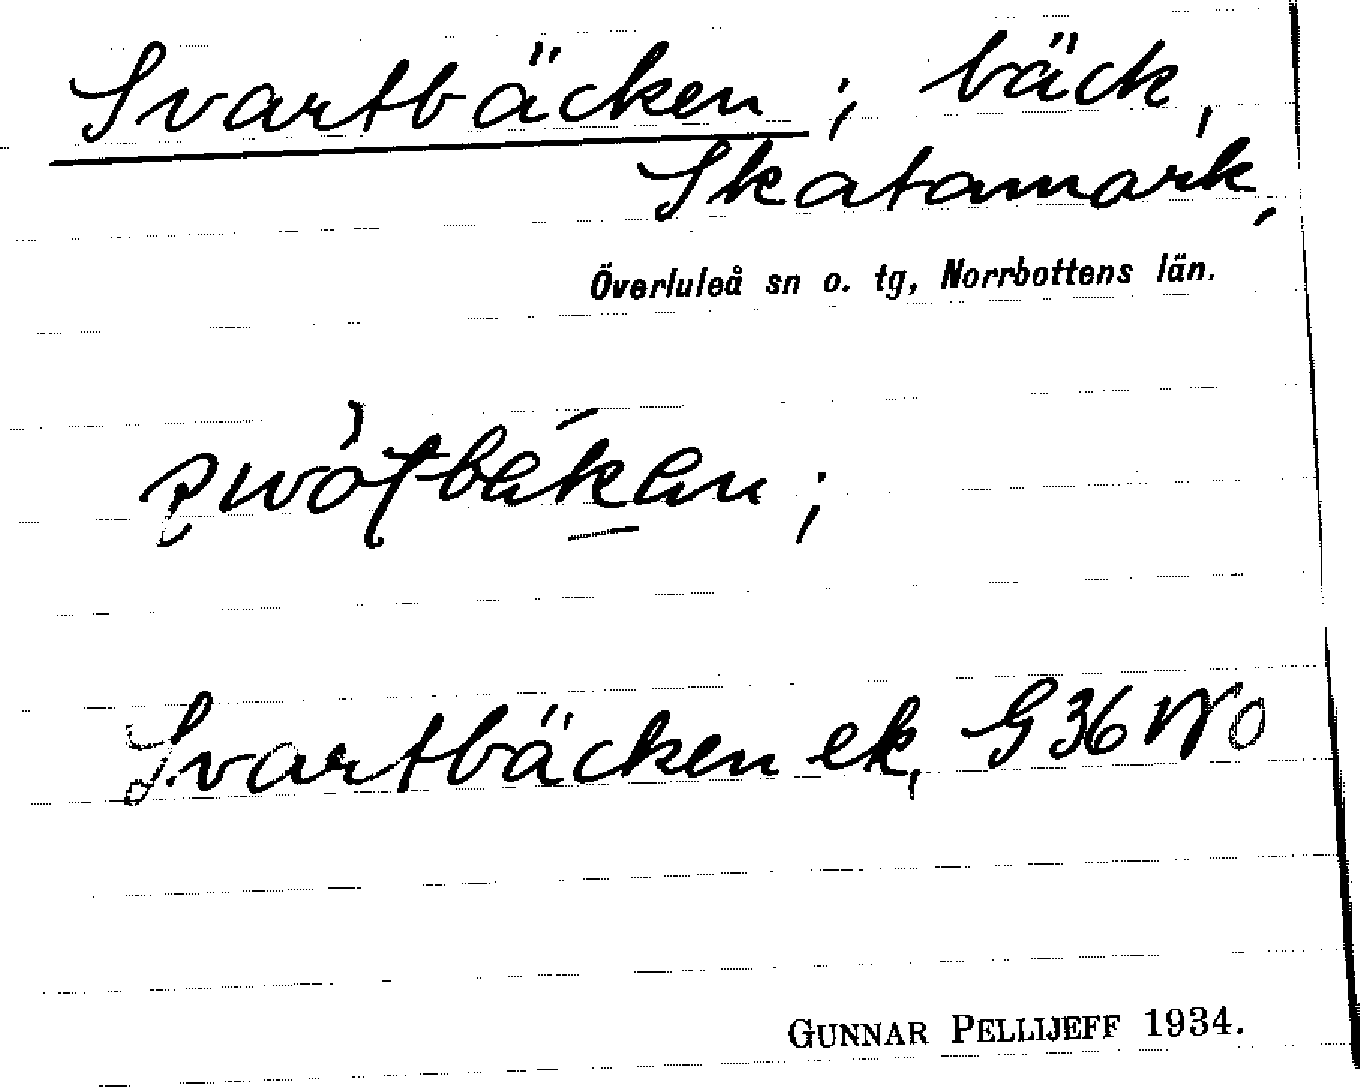 Svartbäcken; bäck,
Skatamark,
Överluleå sn o. tg, Norrbottens län.
Svartbäcken ek, G36NVo
GUNNAR PELLIJEFF 1934.